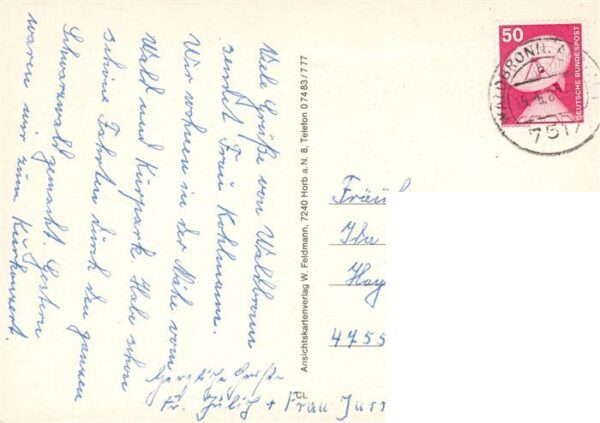 Viele Grüße von Waldbronn
sendet Frau Kohlmann.
Wir wohnen in der Nähe vom
Wald und Kurpark. Habe schon
schöne Fahrten durch den ganzen
Schwarzwald gemacht. Gestern
waren wir zum Kurkonzert.
Herzliche Grüße
Fr. Jülich + Frau
Ansichtskartenverlag W. Feldmann, 7240 Horb a. N. 8, Telefon 07483/777
CL
50
DEUTSCHE BUNDESPOST
WALDBRONN
7517
Fräul
Ida
Hay
4755